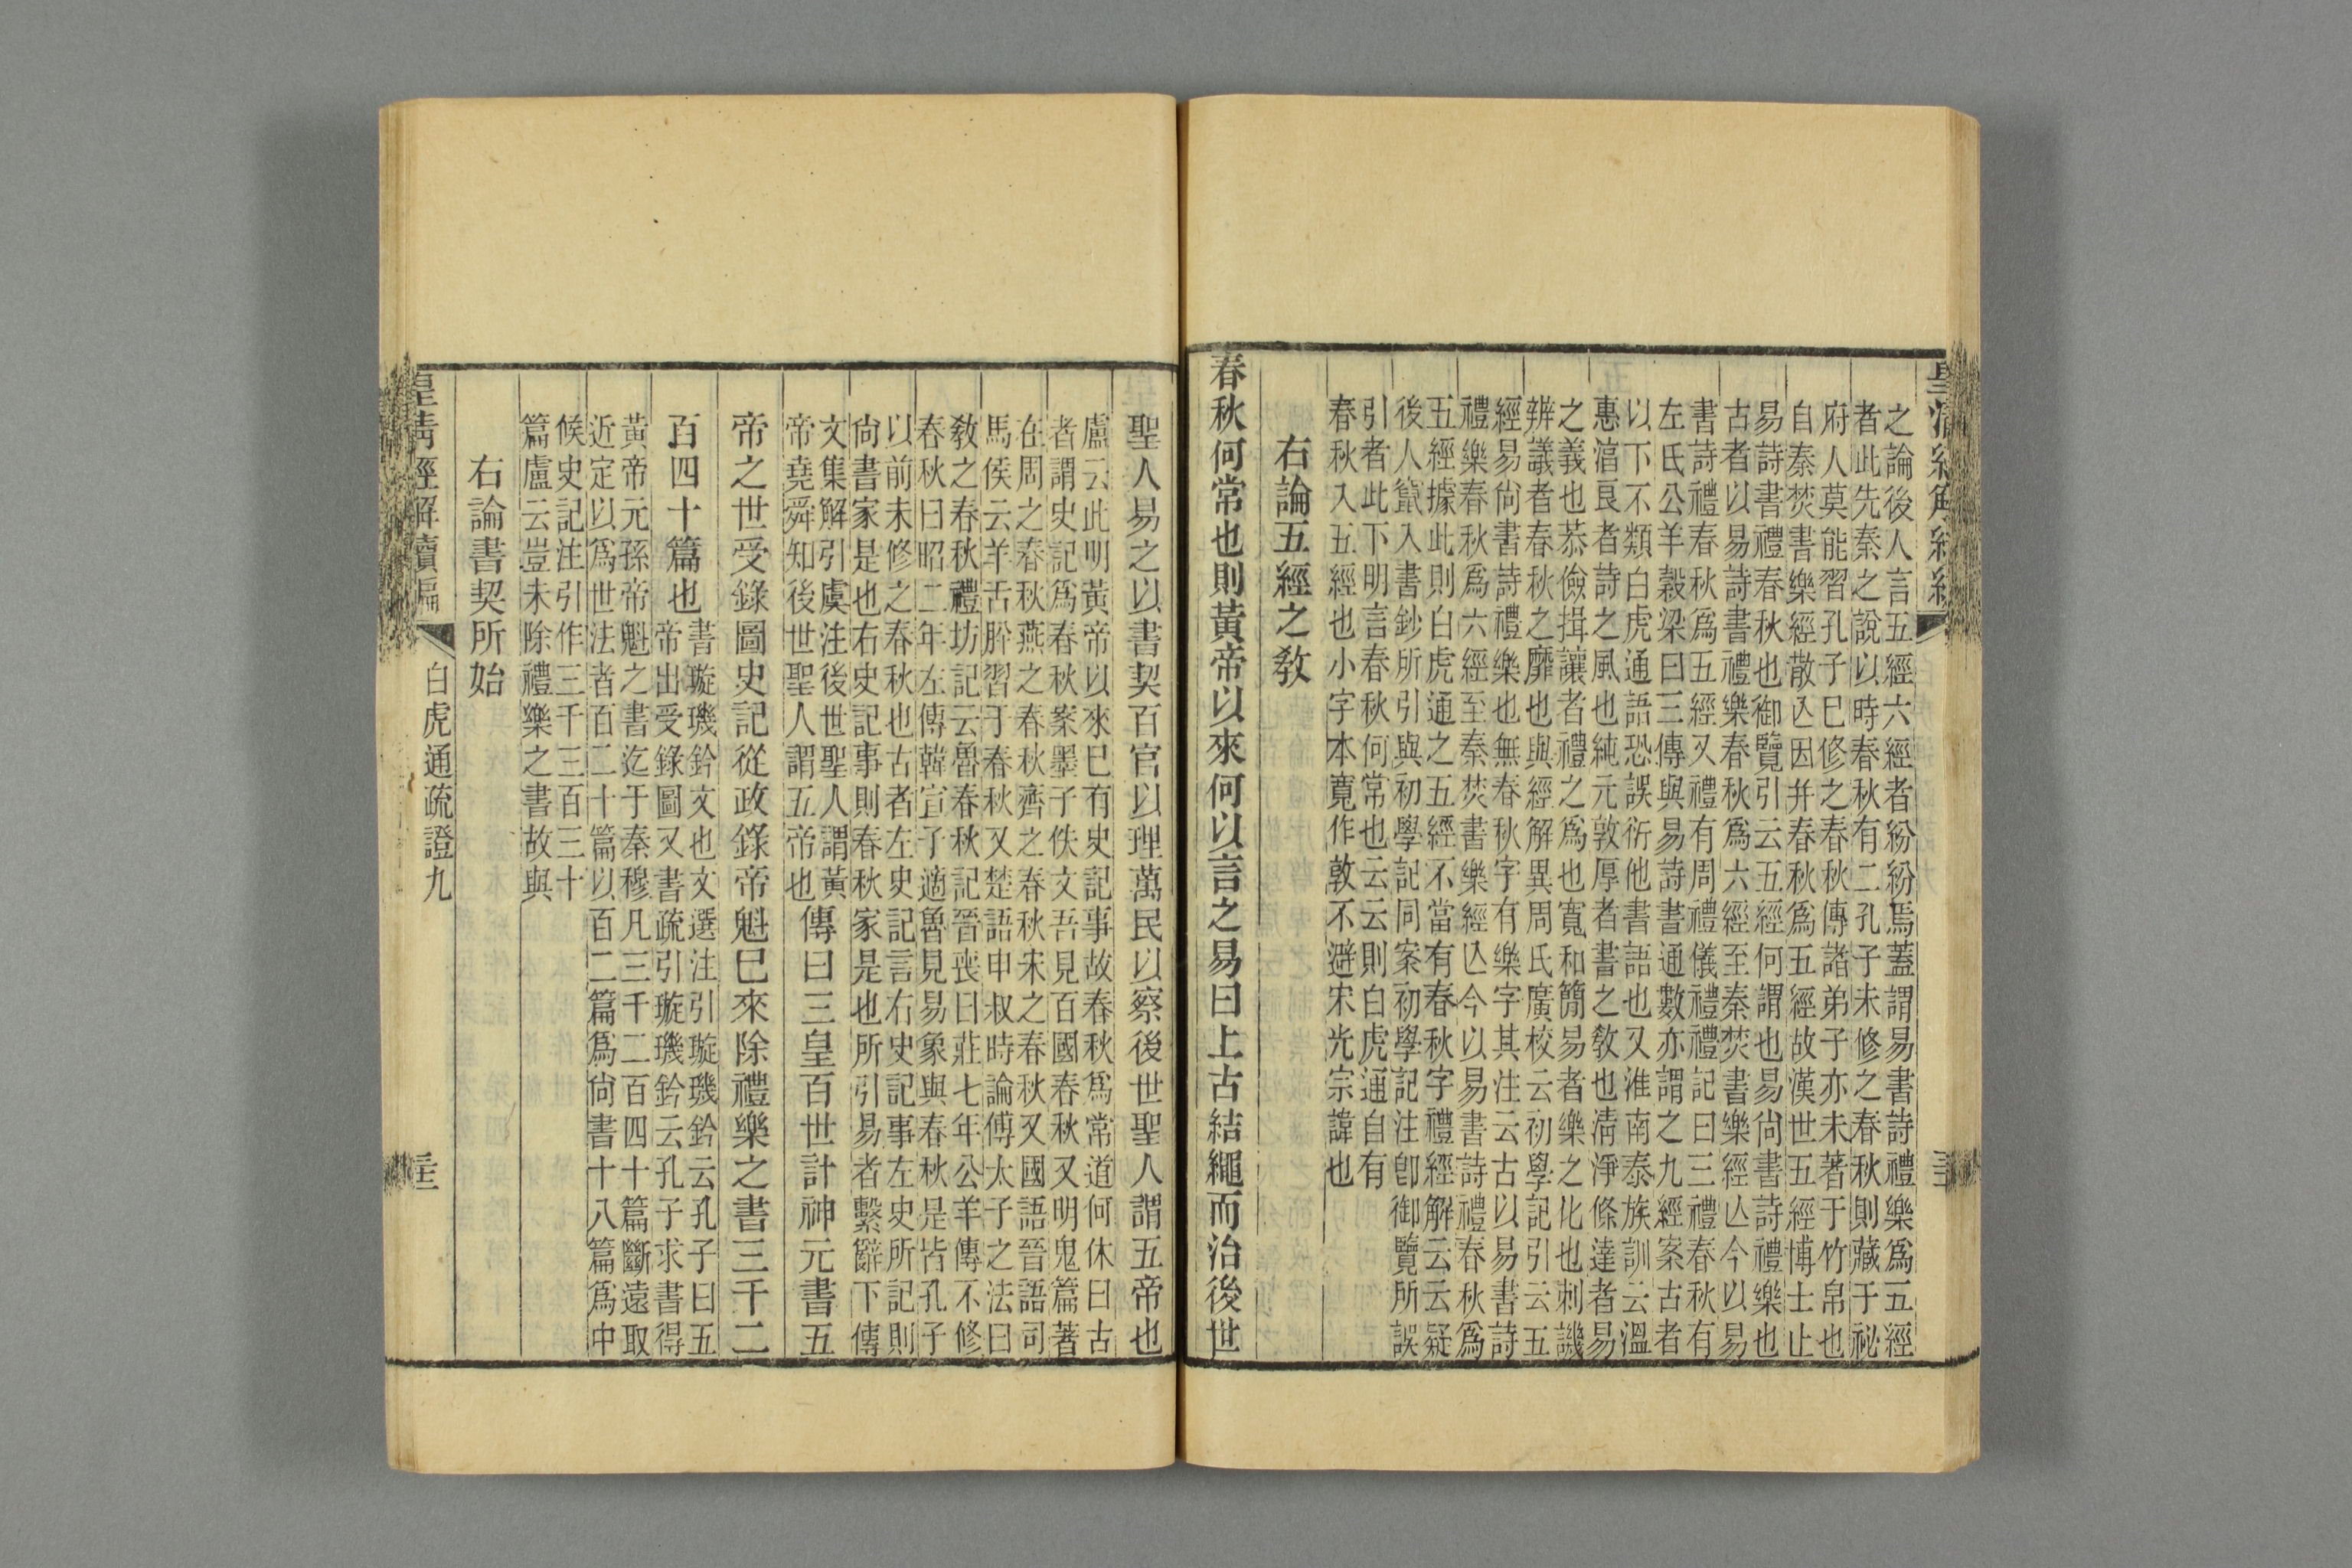 之論後人言五經六經者紛紛焉蓋謂易書詩禮樂爲五經
者此先秦之說以時春秋有二孔子未修之春秋則藏于祕
府人莫能習孔子巳修之春秋傳諸弟子亦未著于竹帛也
自秦焚書樂經散亾因并春秋爲五經故漢世五經博士止
易詩書禮春秋也御覽引云五經何謂也易尙書詩禮樂也
古者以易詩書禮樂春秋爲六經至秦焚書樂經亾今以易
書詩禮春秋爲五經又禮有周禮儀禮禮記曰三禮春秋有
左氏公羊穀梁曰三傳與易詩書通數亦謂之九經案古者
以下不類白虎通語恐誤衍他書語也又淮南泰族訓云溫
惠良者詩之風也純元敦厚者書之敎也淸淨條達者易
之義也恭儉揖讓者禮之爲也寬和簡易者樂之化也刺譏
辨議者春秋之靡也與經解異周氏廣校云初學記引云五
經易尙書詩禮樂也無春秋字有樂字其注云古以易書詩
禮樂春秋爲六經至秦焚書樂經亾今以易書詩禮春秋爲
五經據此則白虎通之五經不當有春秋字禮經解云云疑
後人竄入書鈔所引與初學記同案初學記注卽御覽所誤
引者此下明言春秋何常也云云則白虎通自有
春秋入五經也小字本寬作敦不避宋光宗諱也
右論五經之敎
春秋何常也則黃帝以來何以言之易曰上古結繩而治後世
聖人易之以書契百官以理萬民以察後世聖人謂五帝也
盧云此明黃帝以來巳有史記事故春秋爲常道何休曰古
者謂史記爲春秋案墨子佚文吾見百國春秋又明鬼篇著
在周之春秋燕之春秋齊之春秋宋之春秋又國語晉語司
馬侯云羊舌肸習于春秋又楚語申叔時論傅太子之法曰
敎之春秋禮坊記云魯春秋記晉喪曰莊七年公羊傳不修
春秋曰昭二年左傳韓宣子適魯見易象與春秋是皆孔子
以前未修之春秋也古者左史記言右史記事左史所記則
尙書家是也右史記事則春秋家是也所引易者繫辭下傳
文集解引虞注後世聖人謂黃
帝堯舜知後世聖人謂五帝也
傳曰三皇百世計神元書五
帝之世受錄圖史記從政錄帝魁巳來除禮樂之書三千二
百四十篇也
書璇璣鈐文也文選注引璇璣鈐云孔子曰五
帝出受錄圖又書疏引璇璣鈐云孔子求書得
黃帝元孫帝魁之書迄于秦穆凡三千二百四十篇斷遠取
近定以爲世法者百二十篇以百二篇爲尙書十八篇爲中
候史記注引作三千三百三十
篇盧云豈未除禮樂之書故與
右論書契所始
皇清經解續編
白虎通疏證九